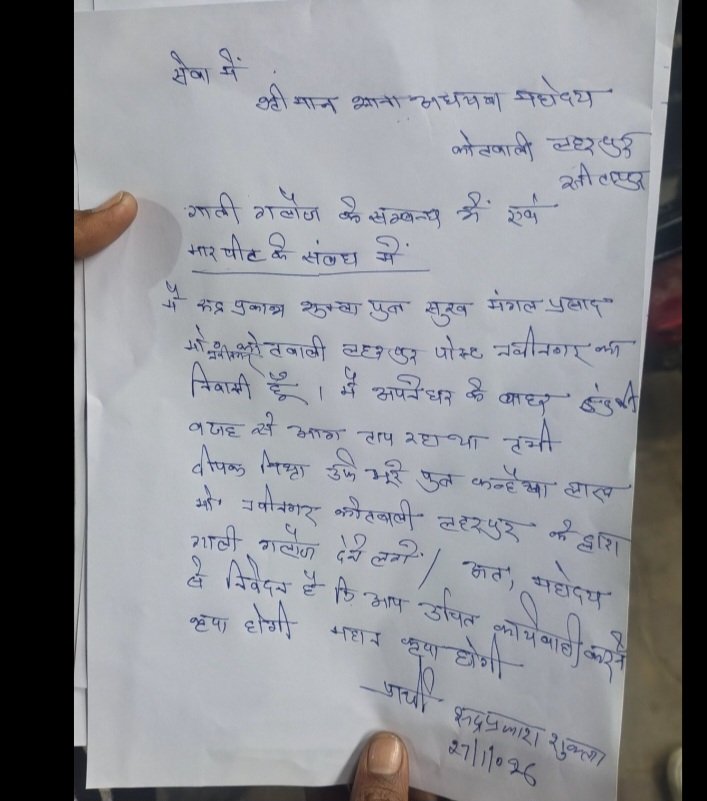 सेवा में
श्रीमान थाना अध्यक्ष महोदय
कोतवाली लहरपुर
सीतापुर
गाली गलौज के सम्बन्ध में एवं
मारपीट के संबध में
मैं रूद्र प्रकाश शुक्ला पुत्र सुख मंगल प्रसाद
मो० नवीनगर कोतवाली लहरपुर पोस्ट नवीनगर का
निवासी हूँ । मैं अपने घर के बाहर ठंड की
वजह से आग ताप रहा था तभी
दीपक मिश्रा उर्फ भूरे पुत्र कन्हैया लाल
मो० नवीनगर कोतवाली लहरपुर के द्वारा
गाली गलौज देने लगे / अत, महोदय
से निवेदन है कि आप उचित कार्यवाही करने
कृपा होगी महान कृपा होगी
प्रार्थी रूद्रप्रकाश शुक्ला